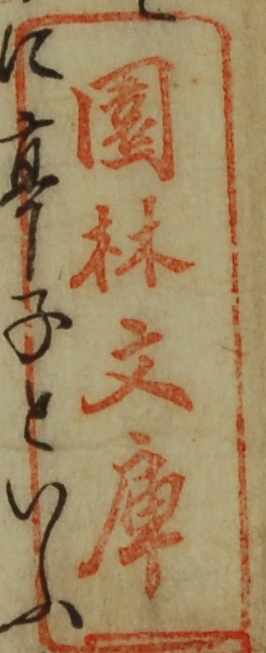 園林文庫
に草子といふ